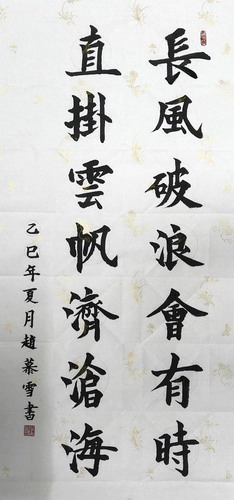 長風破浪會有時
直掛雲帆濟滄海
乙巳年夏月趙慕雪書